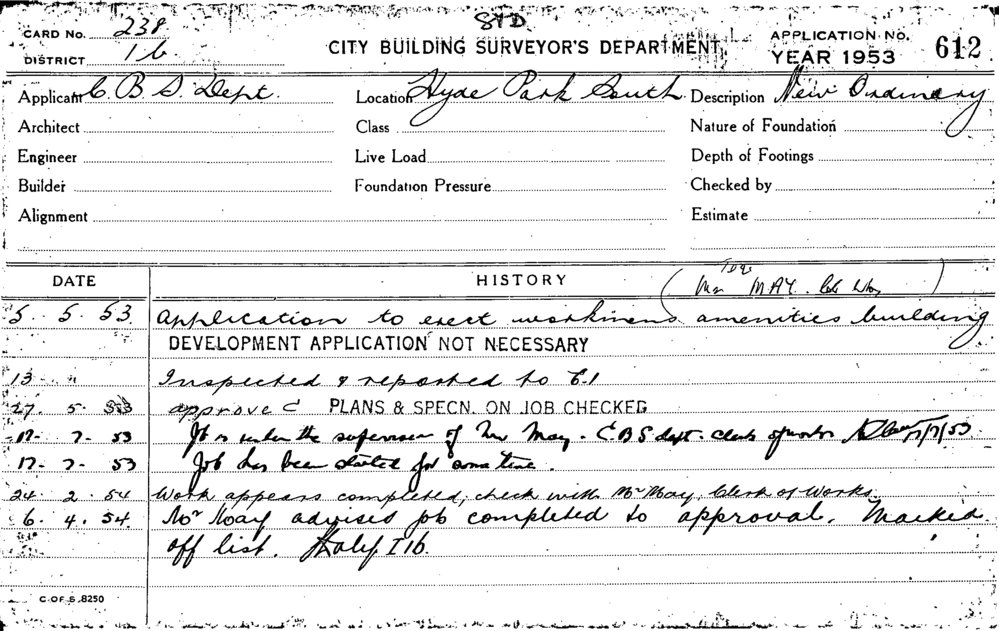 STD.
CARD No. 238
CITY BUILDING SURVEYOR'S DEPARTMENT
APPLICATION No. 612
DISTRICT 16
YEAR 1953
Applicant C. B. S. Dept. Location Hyde Park South Description New Ordinary
Architect Class Nature of Foundation
Engineer Live Load Depth of Footings
Builder Foundation Pressure Checked by
Alignment Estimate
DATE HISTORY (Mr MAY.
5. 5. 53. Application to erect workmens amenities building
DEVELOPMENT APPLICATION NOT NECESSARY
13 " Inspected & reported to
27. 5. 53 approved PLANS & SPECN. ON JOB CHECKED
17- 7- 53 Job is under the supervision of Mr May. C.B.S dept. clerk of works 17/7/53.
17- 7- 53 Job has been started for some time.
24. 2. 54 Work appears completed, check with Mr May, Clerk of Works.
6. 4. 54. Mr May advises job completed to approval. Marked
off list. I 16.
C. OF S. 8250